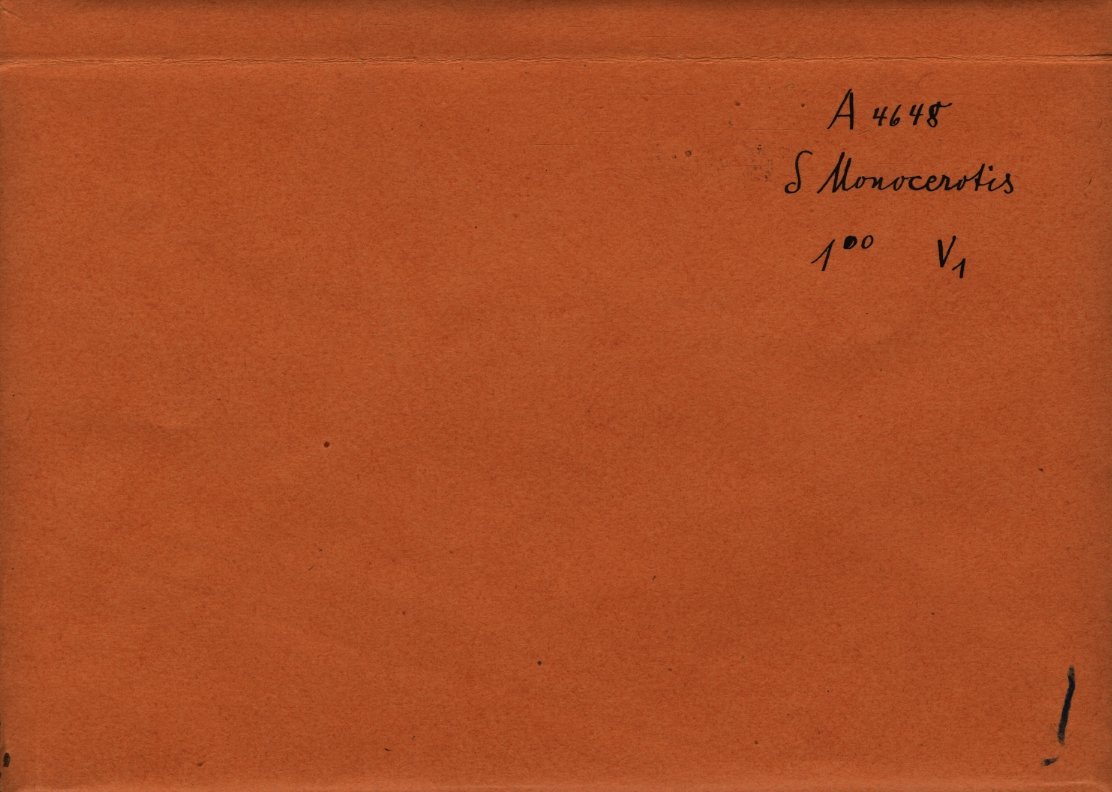 A 4648
S Monocerotis
1⁰⁰ V₁
!